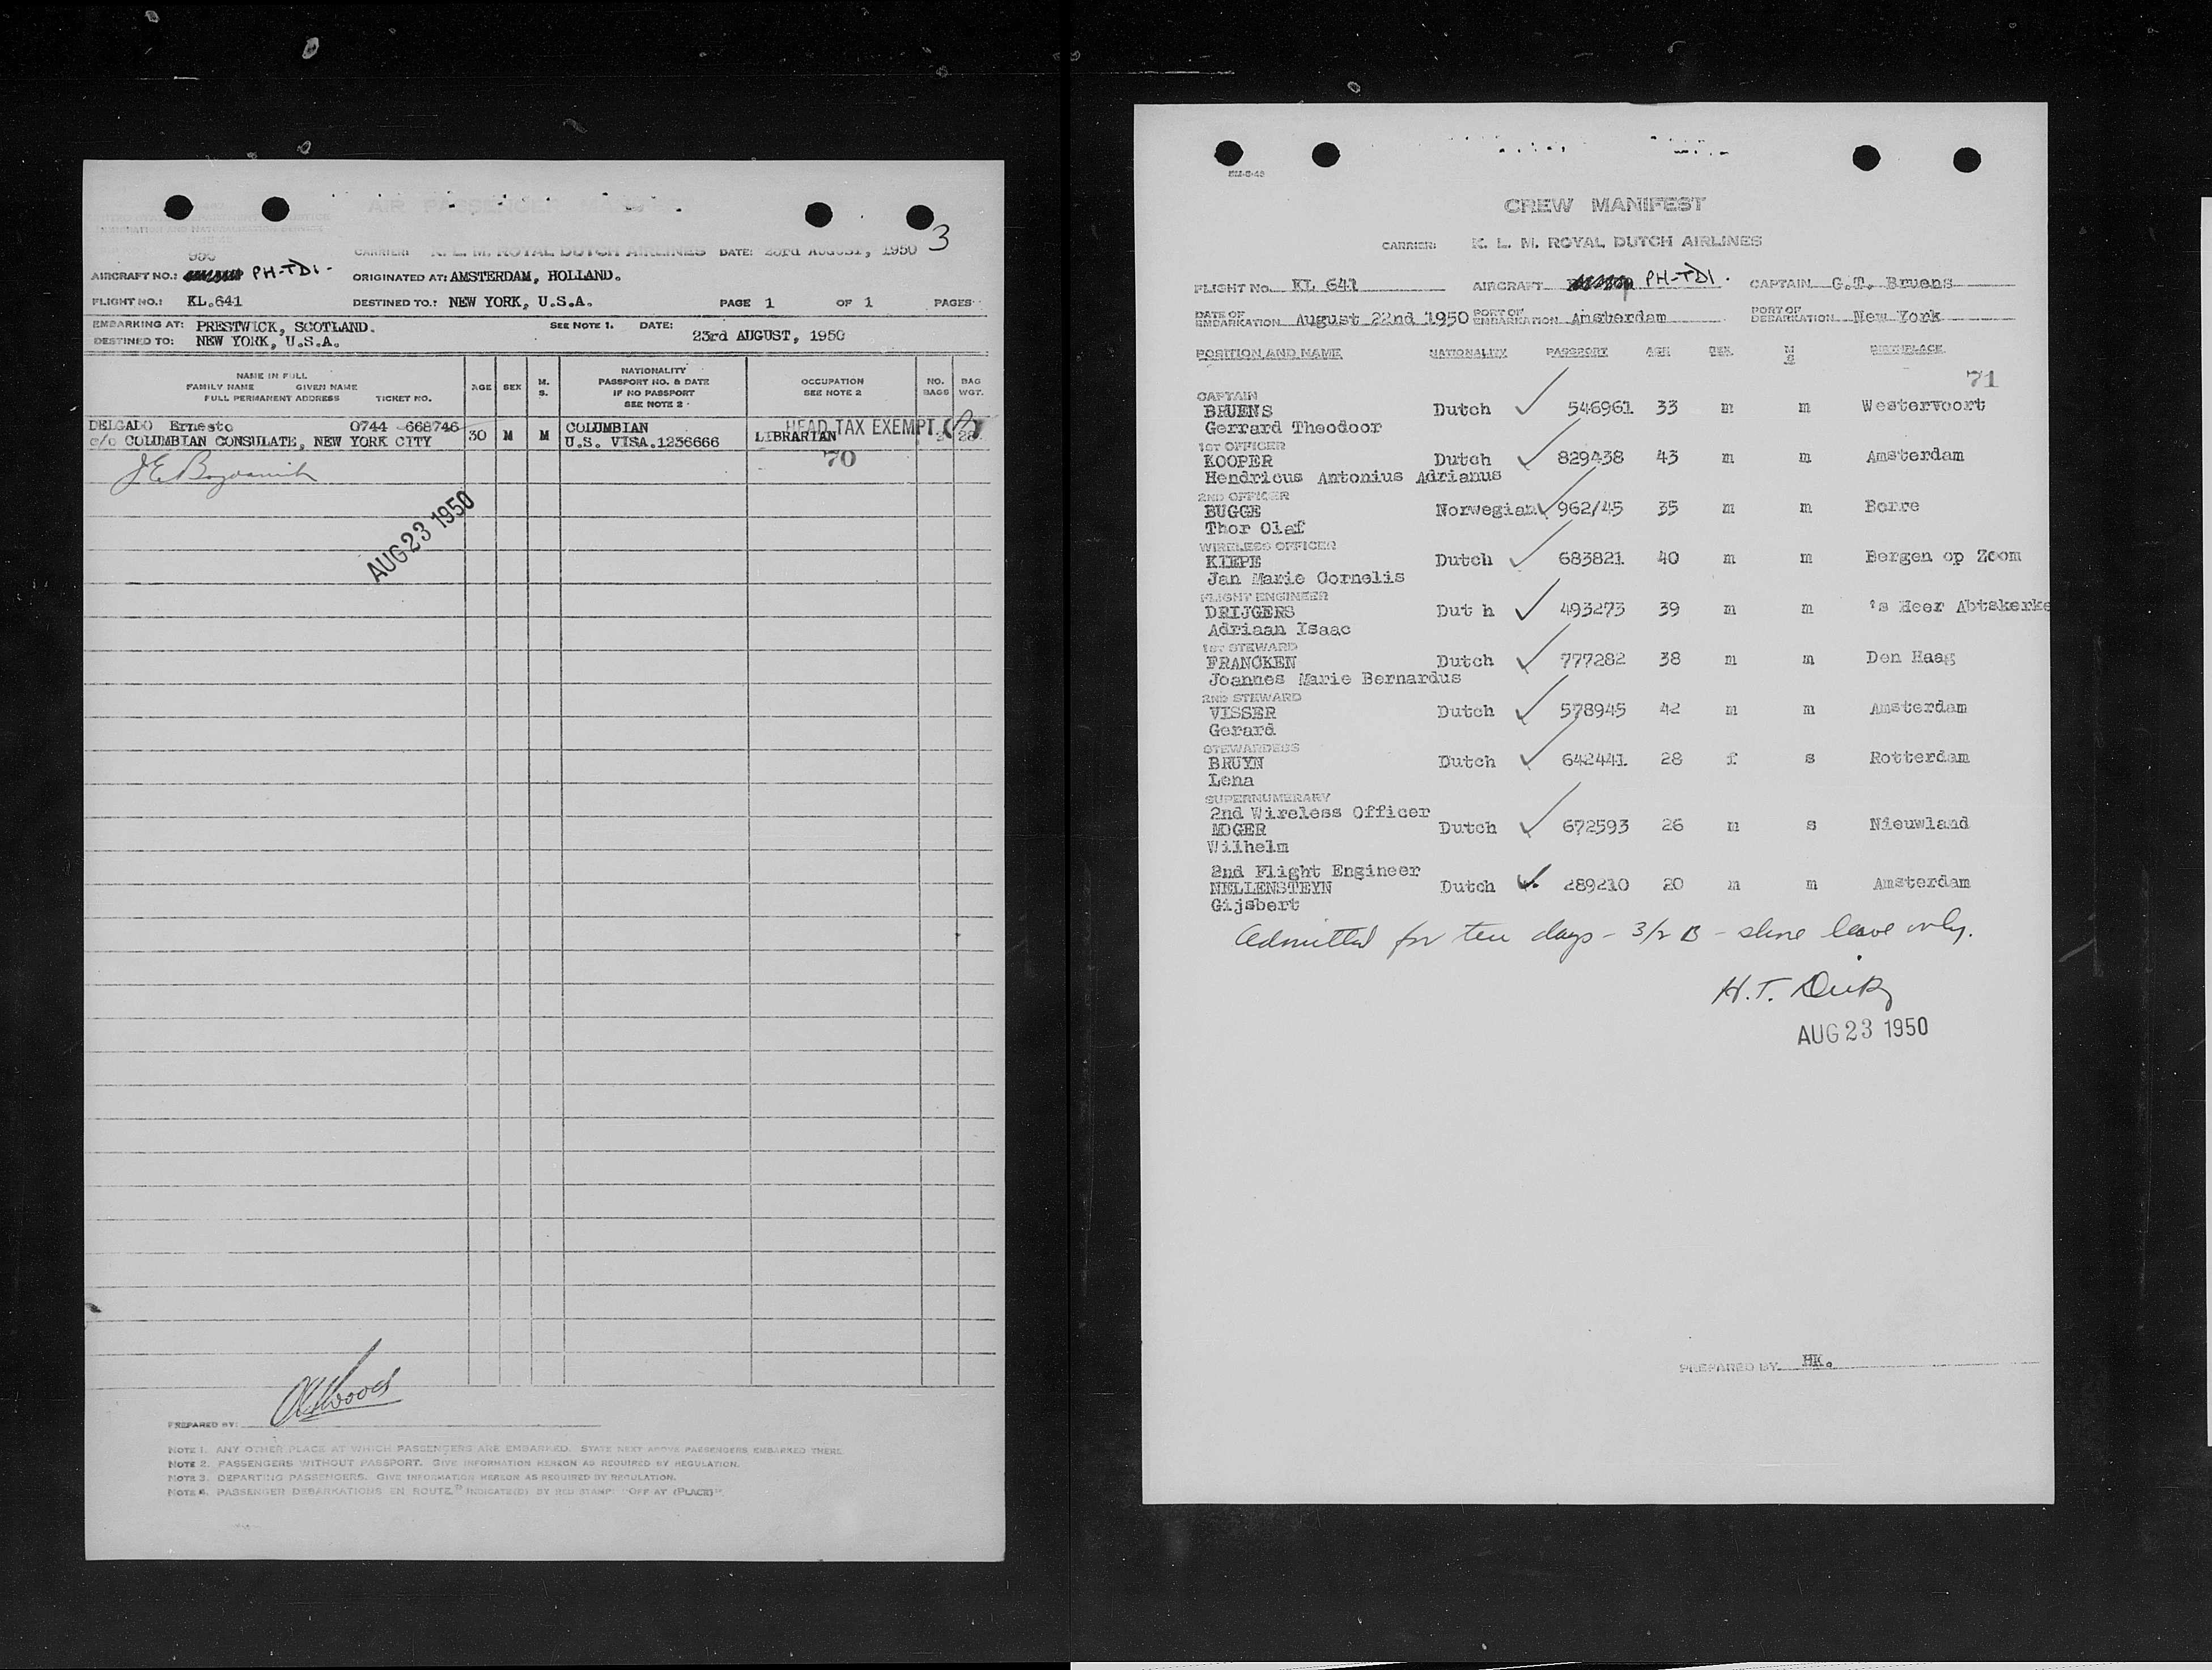 AIR PASSENGER MANIFEST
3
CARRIER: K. L. M. ROYAL DUTCH AIRLINES DATE: 23rd AUGUST, 1950
AIRCRAFT NO.: PH-TDI- ORIGINATED AT: AMSTERDAM, HOLLAND.
FLIGHT NO.: KL.641 DESTINED TO.: NEW YORK, U.S.A. PAGE 1 OF 1 PAGES
EMBARKING AT: PRESTWICK, SCOTLAND. SEE NOTE 1. DATE: 23rd AUGUST, 1950
DESTINED TO: NEW YORK, U.S.A.
NAME IN FULL
FAMILY NAME GIVEN NAME
FULL PERMANENT ADDRESS TICKET NO.
AGE SEX M. S.
NATIONALITY
PASSPORT NO. & DATE
IF NO PASSPORT
SEE NOTE 2
OCCUPATION
SEE NOTE 2
NO. BAGS
BAG WGT.
DELGADO Ernesto 0744 668746
c/o COLUMBIAN CONSULATE, NEW YORK CITY
30 M M
COLUMBIAN
U.S. VISA.1236666
LIBRARIAN
HEAD TAX EXEMPT
70
AUG 23 1950
PREPARED BY:
NOTE 1. ANY OTHER PLACE AT WHICH PASSENGERS ARE EMBARKED. STATE NEXT ABOVE PASSENGERS EMBARKED THERE.
NOTE 2. PASSENGERS WITHOUT PASSPORT. GIVE INFORMATION HEREON AS REQUIRED BY REGULATION.
NOTE 3. DEPARTING PASSENGERS. GIVE INFORMATION HEREON AS REQUIRED BY REGULATION.
NOTE 4. PASSENGER DEBARKATIONS EN ROUTE. INDICATE(D) BY RED STAMP "OFF AT (PLACE)".
CREW MANIFEST
CARRIER: K. L. M. ROYAL DUTCH AIRLINES
FLIGHT No. KL 641 AIRCRAFT PH-TDI. CAPTAIN G.T. Bruens
DATE OF EMBARKATION August 22nd 1950 PORT OF EMBARKATION Amsterdam PORT OF DEBARKATION New York
POSITION AND NAME NATIONALITY PASSPORT AGE SEX M S BIRTHPLACE
71
CAPTAIN
BRUENS Dutch 546961 33 m m Westervoort
Gerrard Theodoor
1ST OFFICER
KOOPER Dutch 829438 43 m m Amsterdam
Hendricus Antonius Adrianus
2ND OFFICER
BUGGE Norwegian 962/45 35 m m Borre
Thor Olaf
WIRELESS OFFICER
KIEPE Dutch 683821 40 m m Bergen op Zoom
Jan Marie Cornelis
FLIGHT ENGINEER
DRIJGERS Dut h 493273 39 m m 's Heer Abtskerke
Adriaan Isaac
1ST STEWARD
FRANCKEN Dutch 777282 38 m m Den Haag
Joannes Marie Bernardus
2ND STEWARD
VISSER Dutch 578945 42 m m Amsterdam
Gerard
STEWARDESS
BRUYN Dutch 642441 28 f s Rotterdam
Lena
SUPERNUMERARY
2nd Wireless Officer
MOGER Dutch 672593 26 m s Nieuwland
Wilhelm
2nd Flight Engineer
NELLENSTEYN Dutch 289210 20 m m Amsterdam
Gijsbert
Admitted for ten days - 3/2 B - shore leave only.
H.T.
AUG 23 1950
PREPARED BY. HK.